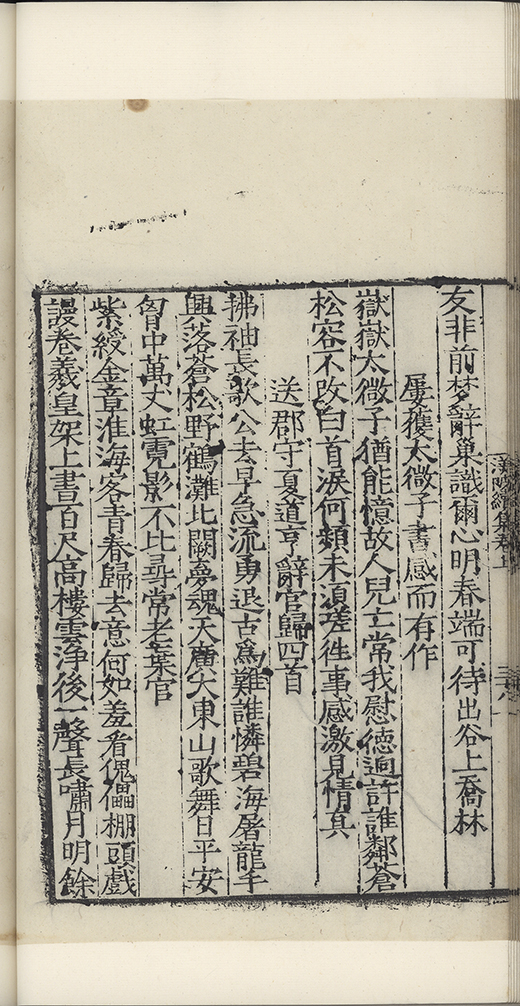 友非前梦辭巢識爾心明春端可待出谷上喬林
屢獲太微子書感而有作
嶽嶽太微子猶能憶故人兒亡常我慰德迥許誰鄰蒼
松容不改白首淚何頻未須嗟徃事感激見情真
送郡守夏道亨辭官歸四首
拂袖長歌公去早急流勇退古爲難誰憐碧海屠龍手
興落蒼松野鶴灘北闕夢魂天廣大東山歌舞日平安
胷中萬丈虹霓影不比尋常老棄官
紫綬金章淮海客青春歸去意何如羞看傀儡棚頭戲
謾卷羲皇架上書百尺高樓雲淨後一聲長嘯月明餘
漢陂續集卷上